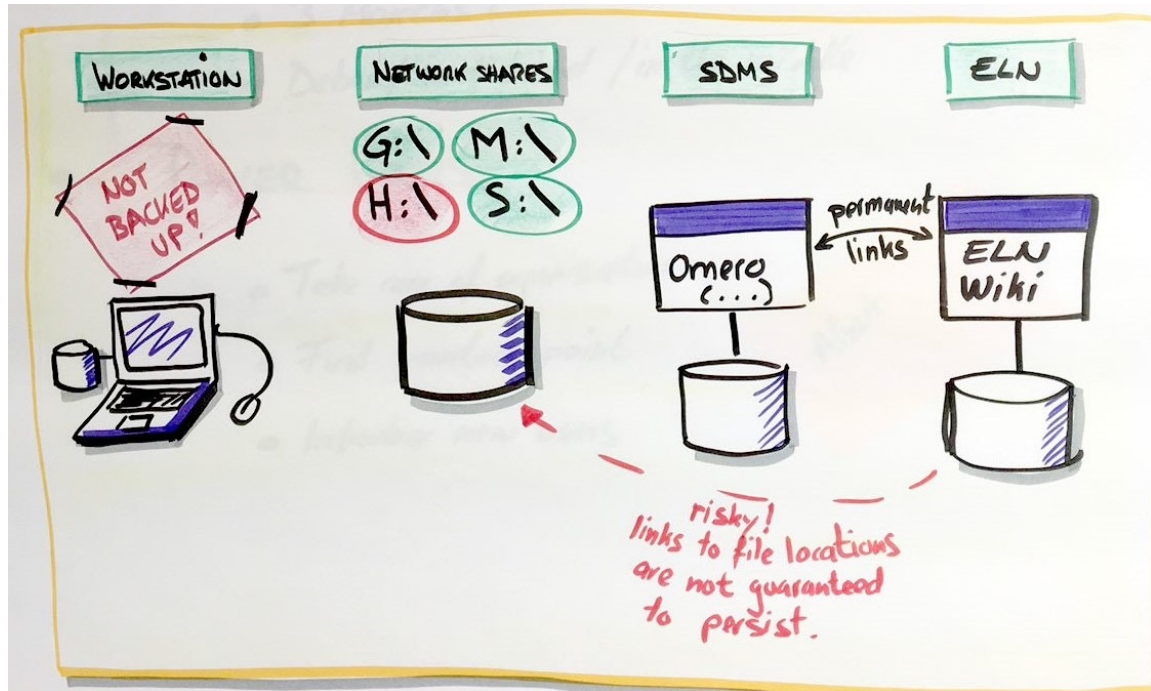 WORKSTATION
NETWORK SHARES
SDMS
ELN
NOT
BACKED
UP!
G:\
M:\
H:\
S:\
Omero
(...)
permanent
links
ELN
Wiki
risky!
links to file locations
are not guaranteed
to persist.